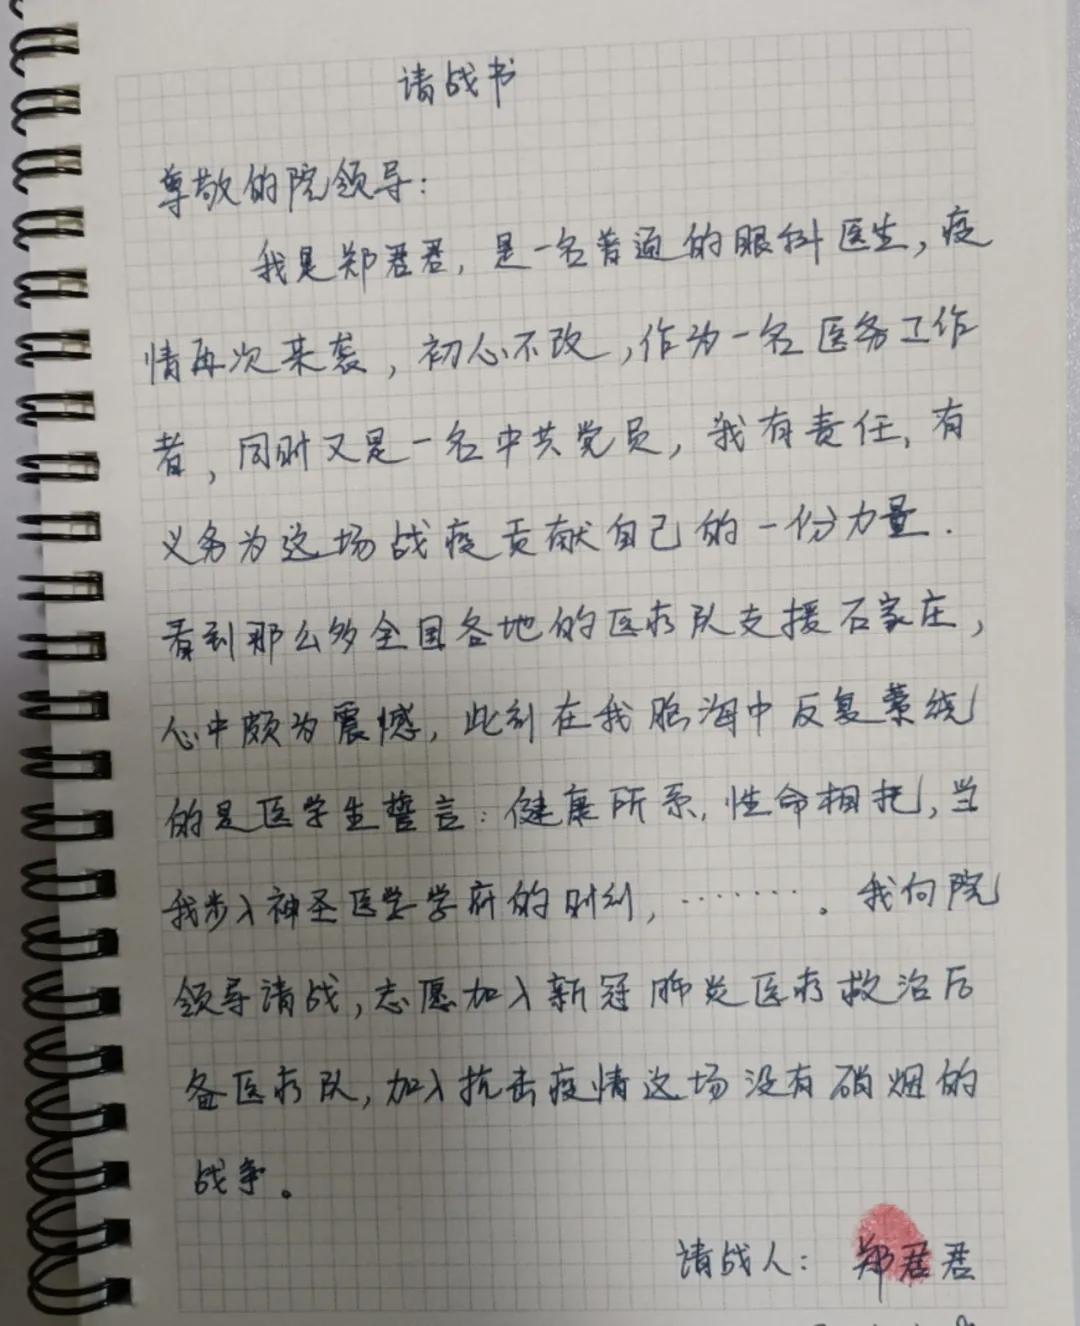 请战书
尊敬的院领导：
我是郑君君，是一名普通的眼科医生，疫
情再次来袭，初心不改，作为一名医务工作
者，同时又是一名中共党员，我有责任、有
义务为这场战疫贡献自己的一份力量．
看到那么多全国各地的医疗队支援石家庄，
心中颇为震憾，此刻在我脑海中反复萦绕
的是医学生誓言：健康所系，性命相托，当
我步入神圣医学学府的时刻，……。我向院
领导请战，志愿加入新冠肺炎医疗救治后
备医疗队，加入抗击疫情这场没有硝烟的
战争。
请战人：郑君君